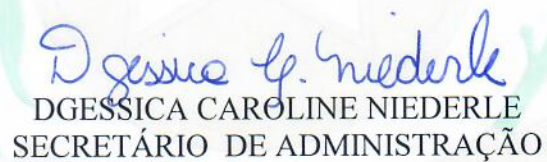 Dgessica G. Niederle
DGESSICA CAROLINE NIEDERLE
SECRETÁRIO DE ADMINISTRAÇÃO